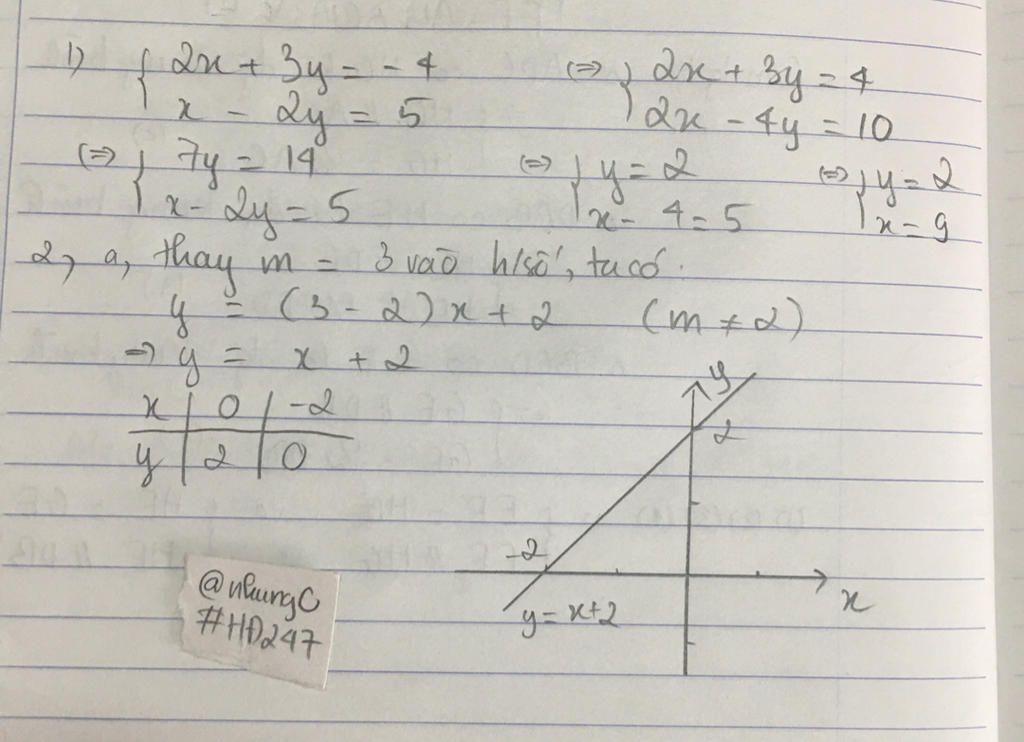 1) { 2x + 3y = - 4 (=) { 2x + 3y = 4
x - 2y = 5 2x - 4y = 10
(=) { 7y = 14 (=) { y = 2 (=) { y = 2
x - 2y = 5 x - 4 = 5 x = 9
2, a, thay m = 3 vào h/số, ta có.
y = (3 - 2) x + 2 (m ≠ 2)
=) y = x + 2
x | 0 | -2
y | 2 | 0
y
2
-2
x
y = x+2
@nhungC
#HĐ247